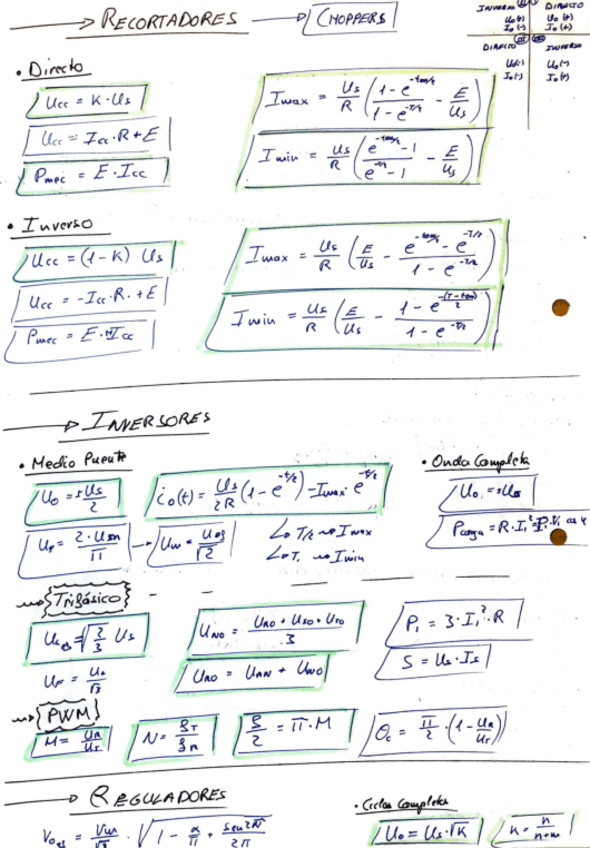 → RECORTADORES → CHOPPERS
INVERSO II I DIRECTO
Uo (+) Uo (+)
Io (-) Io (+)
DIRECTO III IV INVERSO
Uo(-) Uo(-)
Io(-) Io(+)
• Directo
Ucc = K·Us
Ucc = Icc·R+E
Pmec = E·Icc
Imax = Us/R (1-e^-ton/τ / 1-e^-T/τ - E/Us)
Imin = Us/R (e^-ton/τ -1 / e^-T/τ -1 - E/Us)
• Inverso
Ucc = (1-K) Us
Ucc = -Icc·R·+E
Pmec = E·Icc
Imax = Us/R (E/Us - e^-ton/τ - e^-T/τ / 1-e^-T/τ)
Imin = Us/R (E/Us - 1-e^-(T-ton)/τ / 1-e^-T/τ)
→ INVERSORES
• Medio Puente
Uo = ±Us/2
io(t) = Us/2R (1-e^-t/τ) -Imax· e^-t/τ
↳ T/2 → Imax
↳ T, → Imin
• Onda Completa
Uo = ±Us
Pcarga = R·I1²
→ Trifásico
= √2/3 Us
UNO = UAO+UBO+UCO / 3
UAO = UAN + UNO
P1 = 3·I1²·R
S = Us·Is
→ PWM
M = UR/UT
N = fT/fR
δ/2 = π·M
θc = π/2 · (1-UR/UT)
→ REGULADORES
= Vm/√2 · √1 - α/π + sen2α/2π
• Ciclos Completos
Uo = Us·√K
K = n/n+m